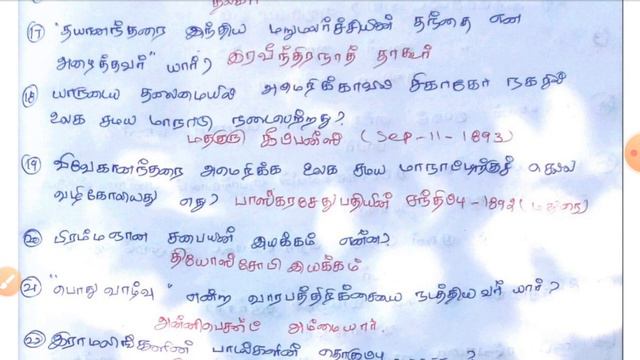 17) "தயானந்தரை இந்திய மறுமலர்ச்சியின் தந்தை என
அழைத்தவர்" யார்? இரவீந்திரநாத் தாகூர்
18) யாருடைய தலைமையில் அமெரிக்காவில் சிகாகோ நகரில்
உலக சமய மாநாடு நடைபெற்றது?
(Sep-11-1893)
19) விவேகானந்தரை அமெரிக்க உலக சமய மாநாட்டிற்குச் செல்ல
வழிகோலியது எது? பாஸ்கரசேதுபதியின் சந்திப்பு - 1892 (மதுரை)
20) பிரம்மஞான சபையின் இயக்கம் என்ன?
தியோஸ்சோபி இயக்கம்
21) "பொது வாழ்வு" என்ற வாரபத்திரிக்கையை நடத்தியவர் யார்?
அன்னிபெசன்ட் அம்மையார்.
22) இராமலிங்கனின் பாடல்களின் தொகுப்பு ?